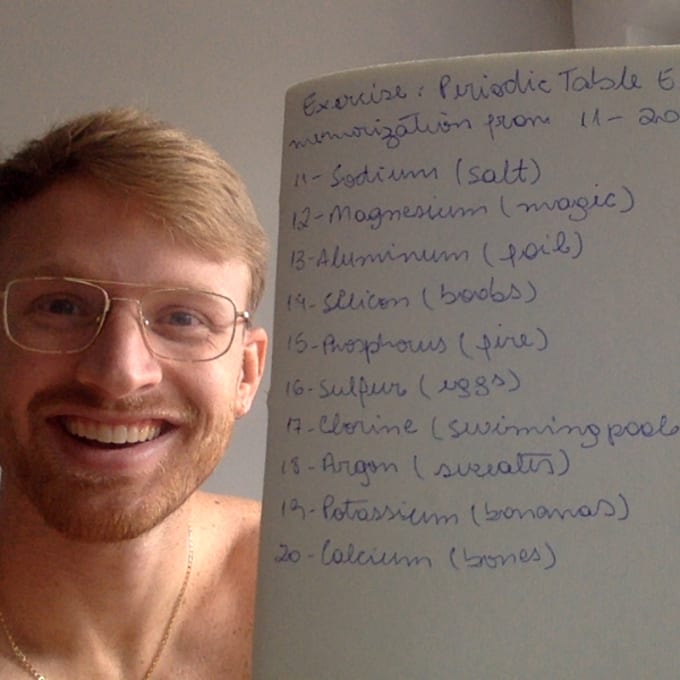 Exercise: Periodic Table E
memorization from 11-20
11-Sodium (salt)
12-Magnesium (magic)
13-Aluminum (foil)
14-Silicon (boobs)
15-Phosphorus (fire)
16-Sulfur (eggs)
17-Clorine (swimingpools
18-Argon (sweats)
19-Potassium (bananas)
20-Calcium (bones)